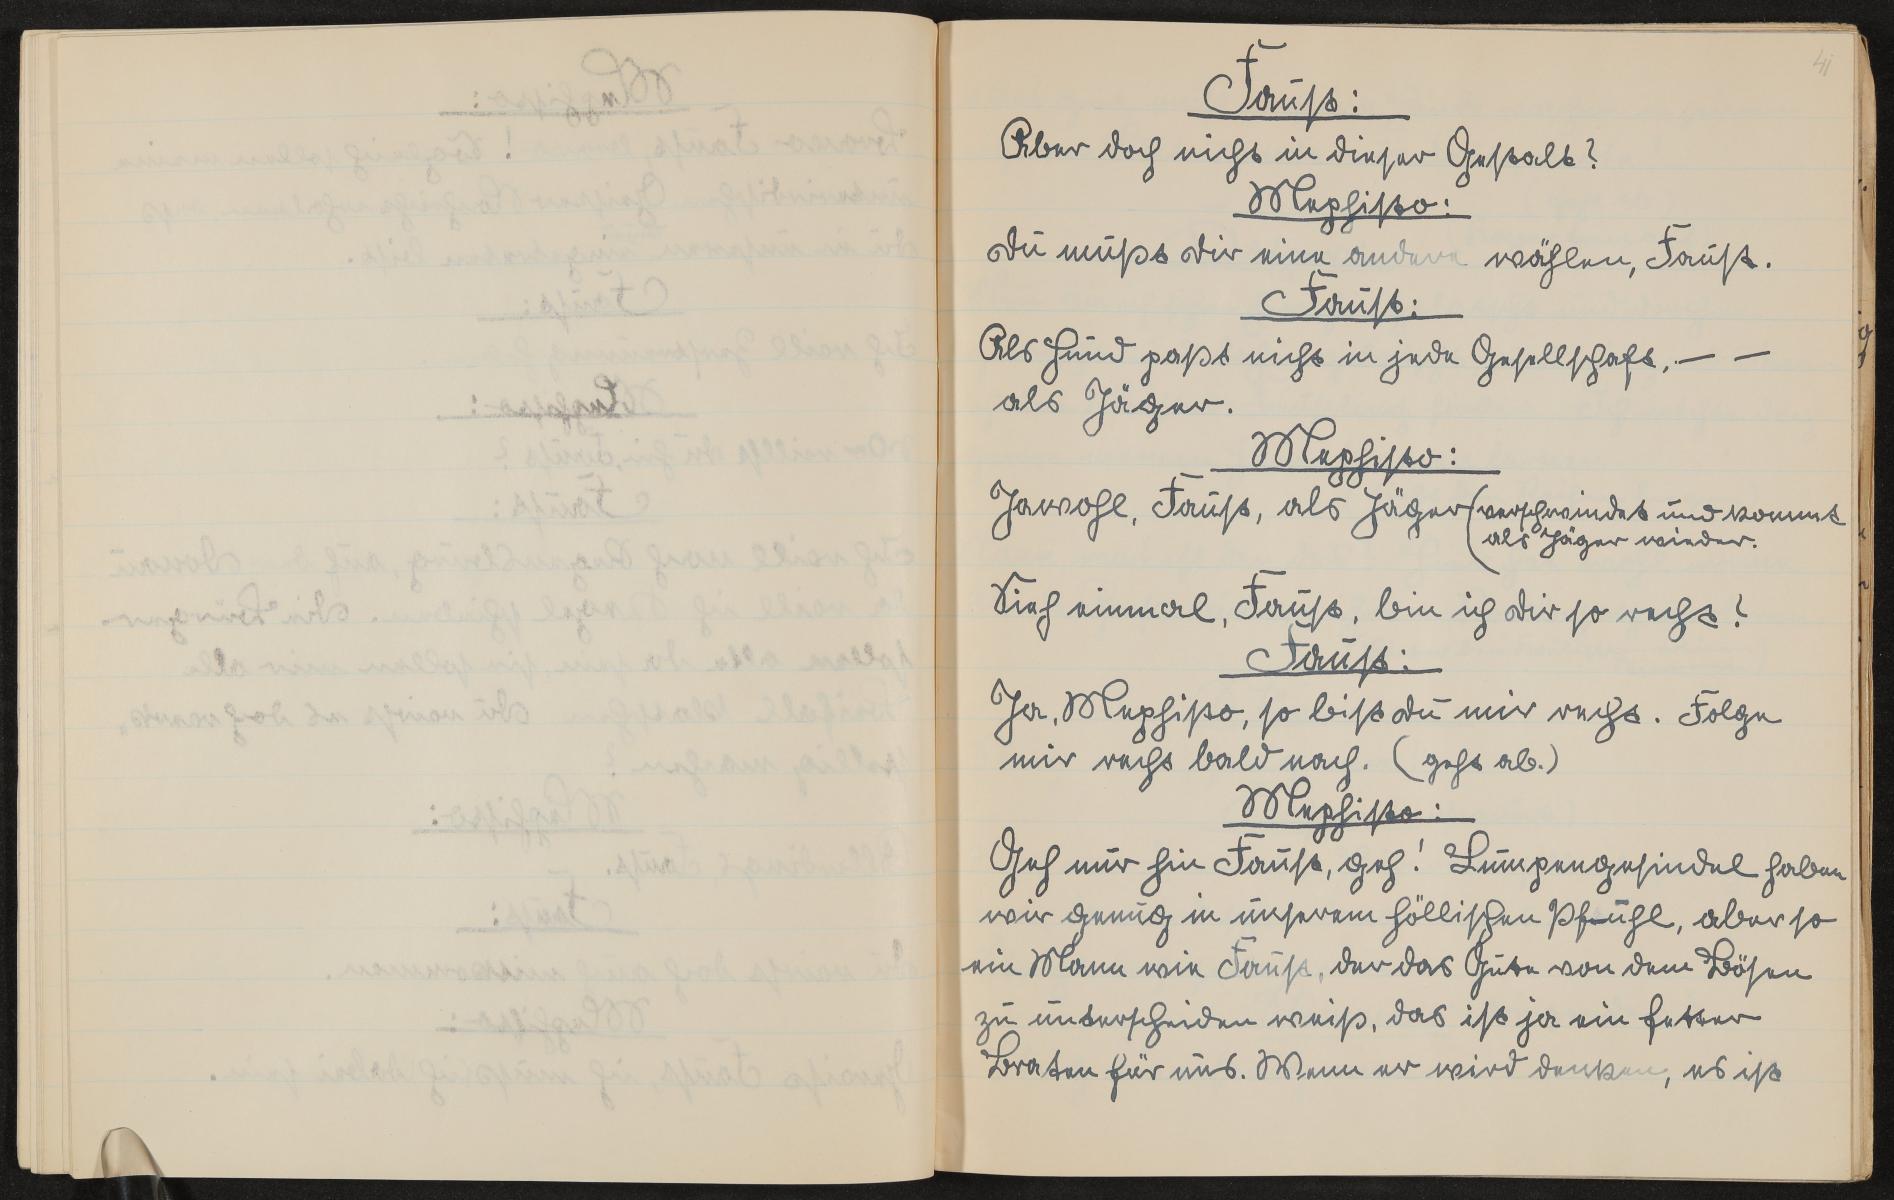 41
Faust:
Aber doch nicht in dieser Gestalt?
Mephisto:
Du mußt dir eine andere wählen, Faust.
Faust:
Als Hund paßt nicht in jede Gesellschaft. — —
als Jäger.
Mephisto:
Jawohl, Faust, als Jäger (verschwindet und kommt
als Jäger wieder.
Sieh einmal, Faust, bin ich dir so recht?
Faust:
Ja, Mephisto, so bist du mir recht. Folge
mir recht bald nach. (geht ab.)
Mephisto:
Geh nur hin Faust, geh! Lumpengesindel haben
wir genug in unserem höllischen Pfuhl, aber so
ein Mann wie Faust, der das Gute von dem Bösen
zu unterscheiden weiß, das ist ja ein fetter
Braten für uns. Wenn er wird denken, es ist